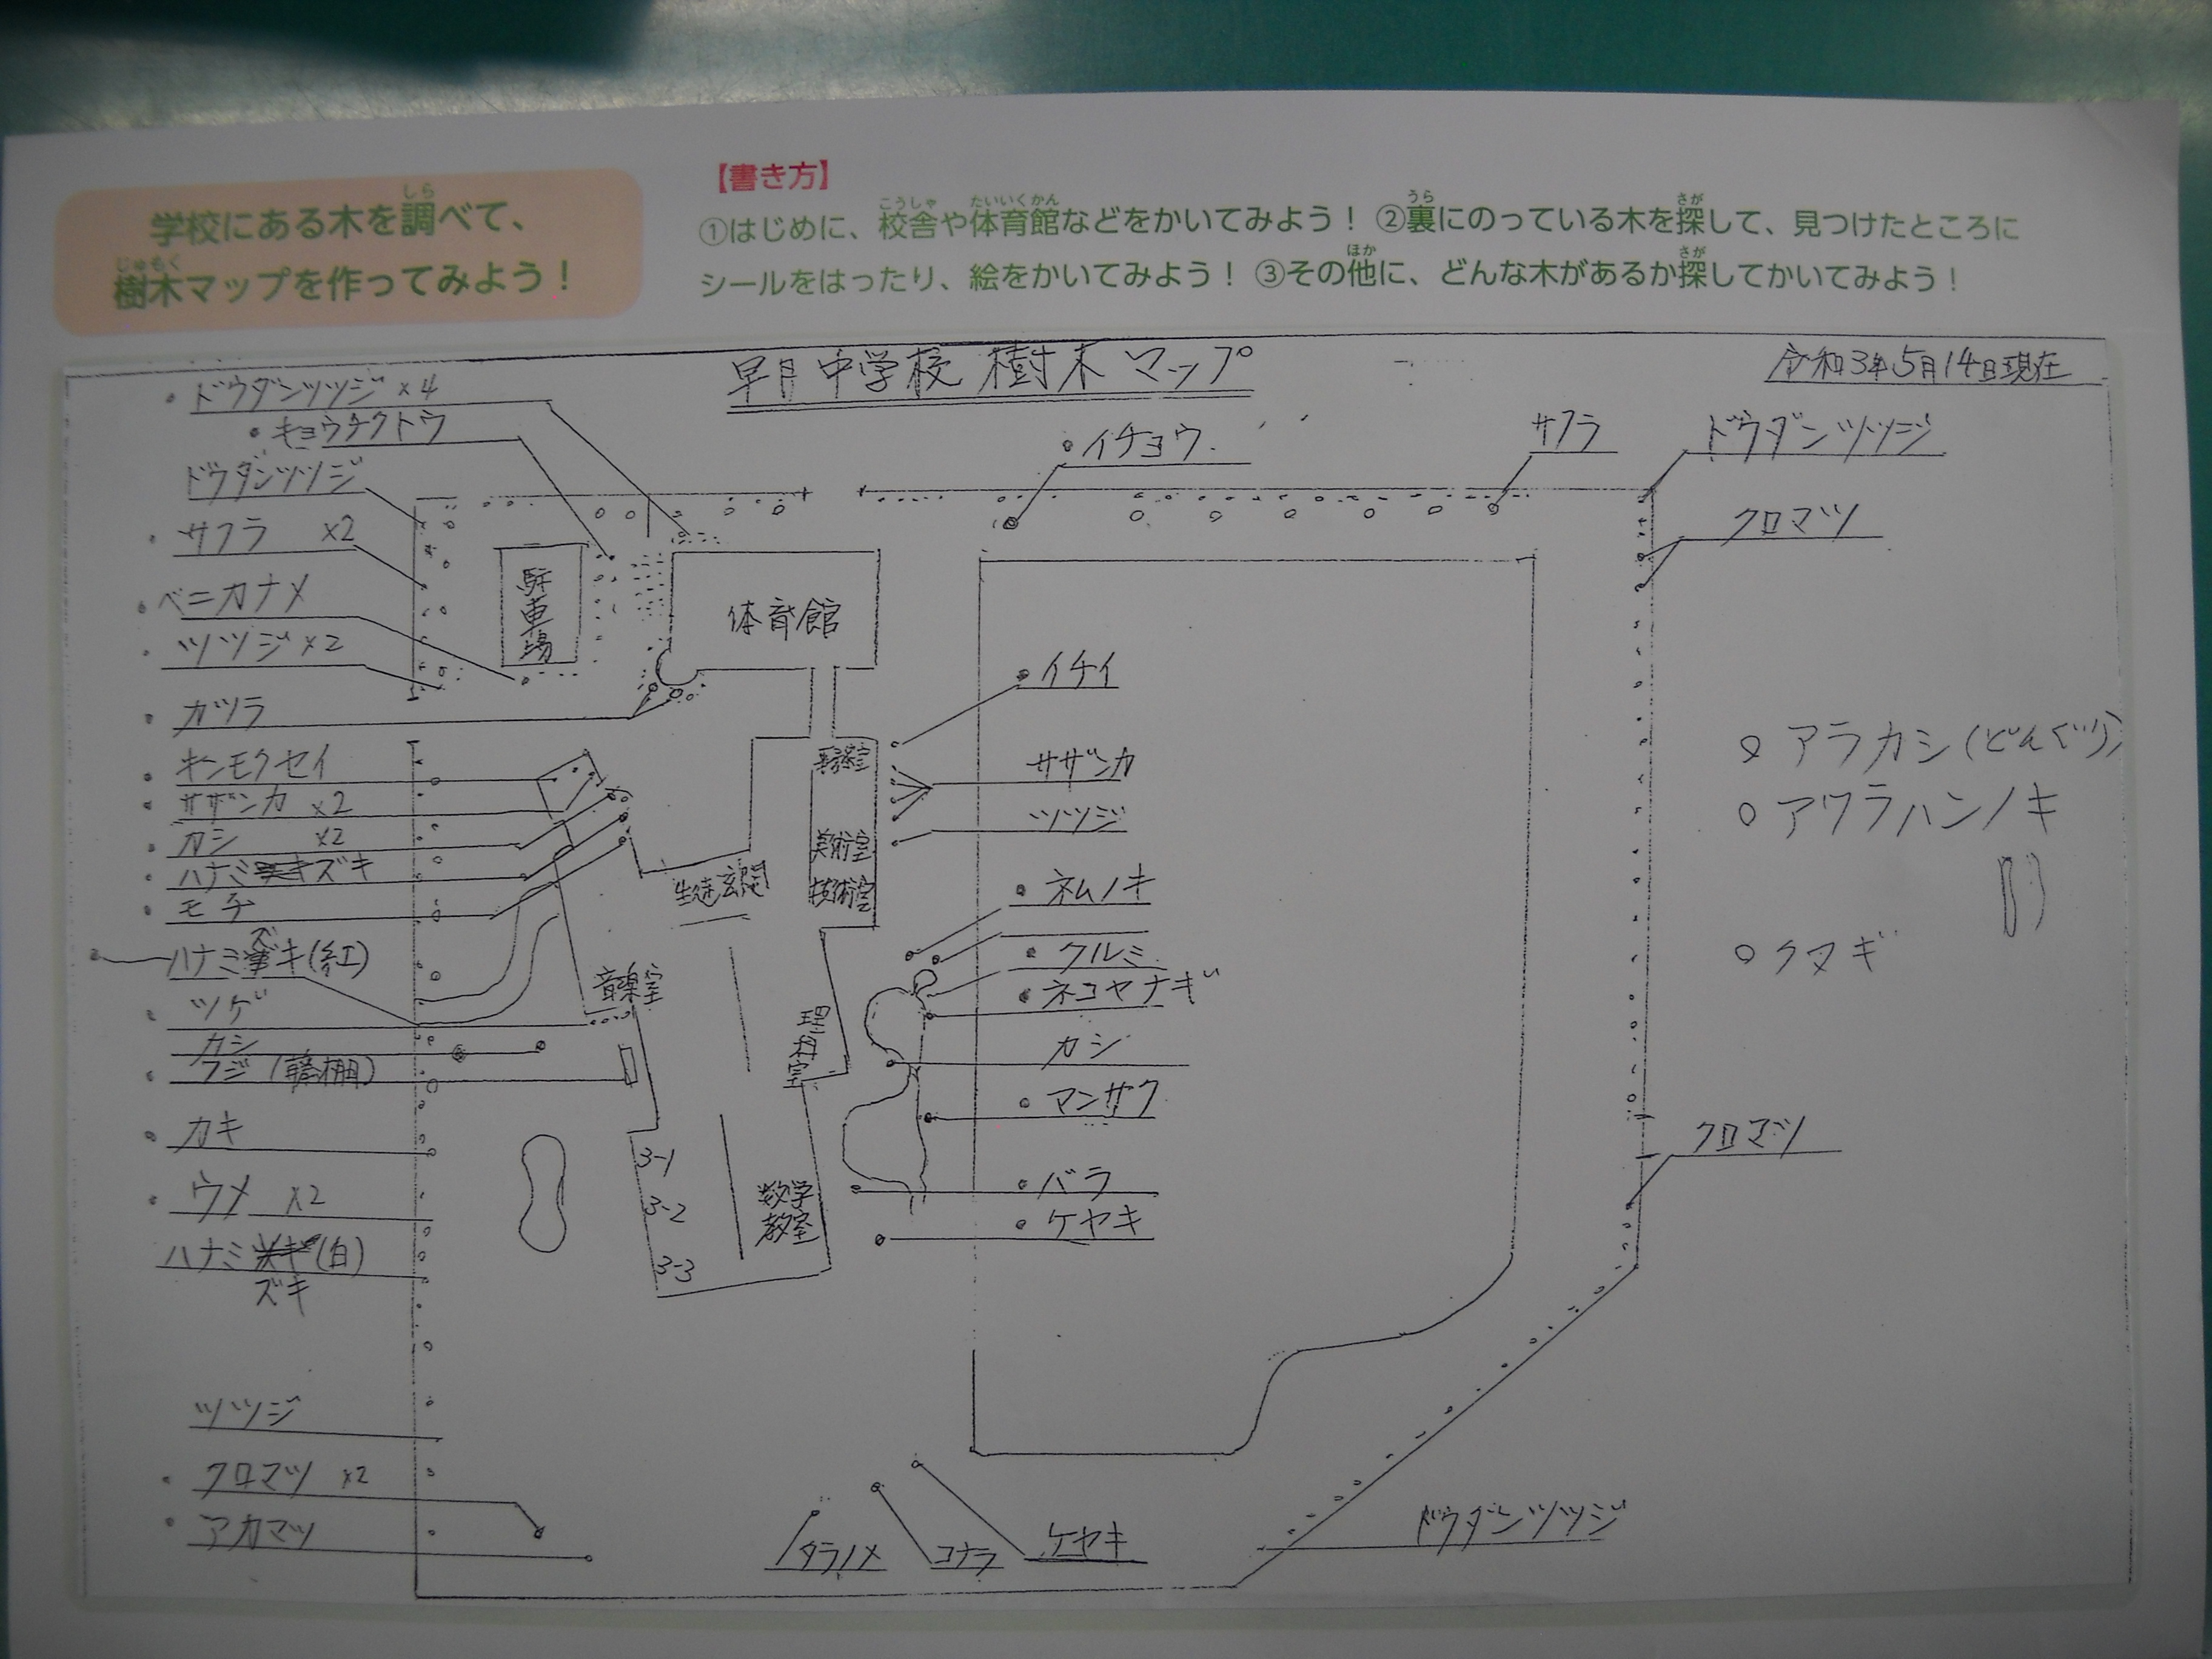 学校にある木を調べて、
樹木マップを作ってみよう！
【書き方】
①はじめに、校舎や体育館などをかいてみよう！ ②裏にのっている木を探して、見つけたところに
シールをはったり、絵をかいてみよう！ ③その他に、どんな木があるか探してかいてみよう！
早月中学校 樹木マップ
令和3年5月14日現在
ドウダンツツジ ×4
キョウチクトウ
ドウダンツツジ
サクラ ×2
ベニカナメ
ツツジ ×2
カツラ
キンモクセイ
サザンカ ×2
カシ ×2
ハナミズキ
モチ
ハナミズキ(紅)
ツゲ
カシ
フジ (藤棚)
カキ
ウメ ×2
ハナミズキ(白)
ツツジ
クロマツ ×2
アカマツ
駐車場
体育館
生徒玄関
美術室
技術室
音楽室
理科室
3-1
3-2
3-3
数学
教室
イチョウ
サクラ
ドウダンツツジ
クロマツ
イチイ
サザンカ
ツツジ
ネムノキ
クルミ
ネコヤナギ
カシ
マンサク
バラ
ケヤキ
アラカシ (どんぐり)
アワラハンノキ
クヌギ
クロマツ
タラノメ
コナラ
ケヤキ
ドウダンツツジ